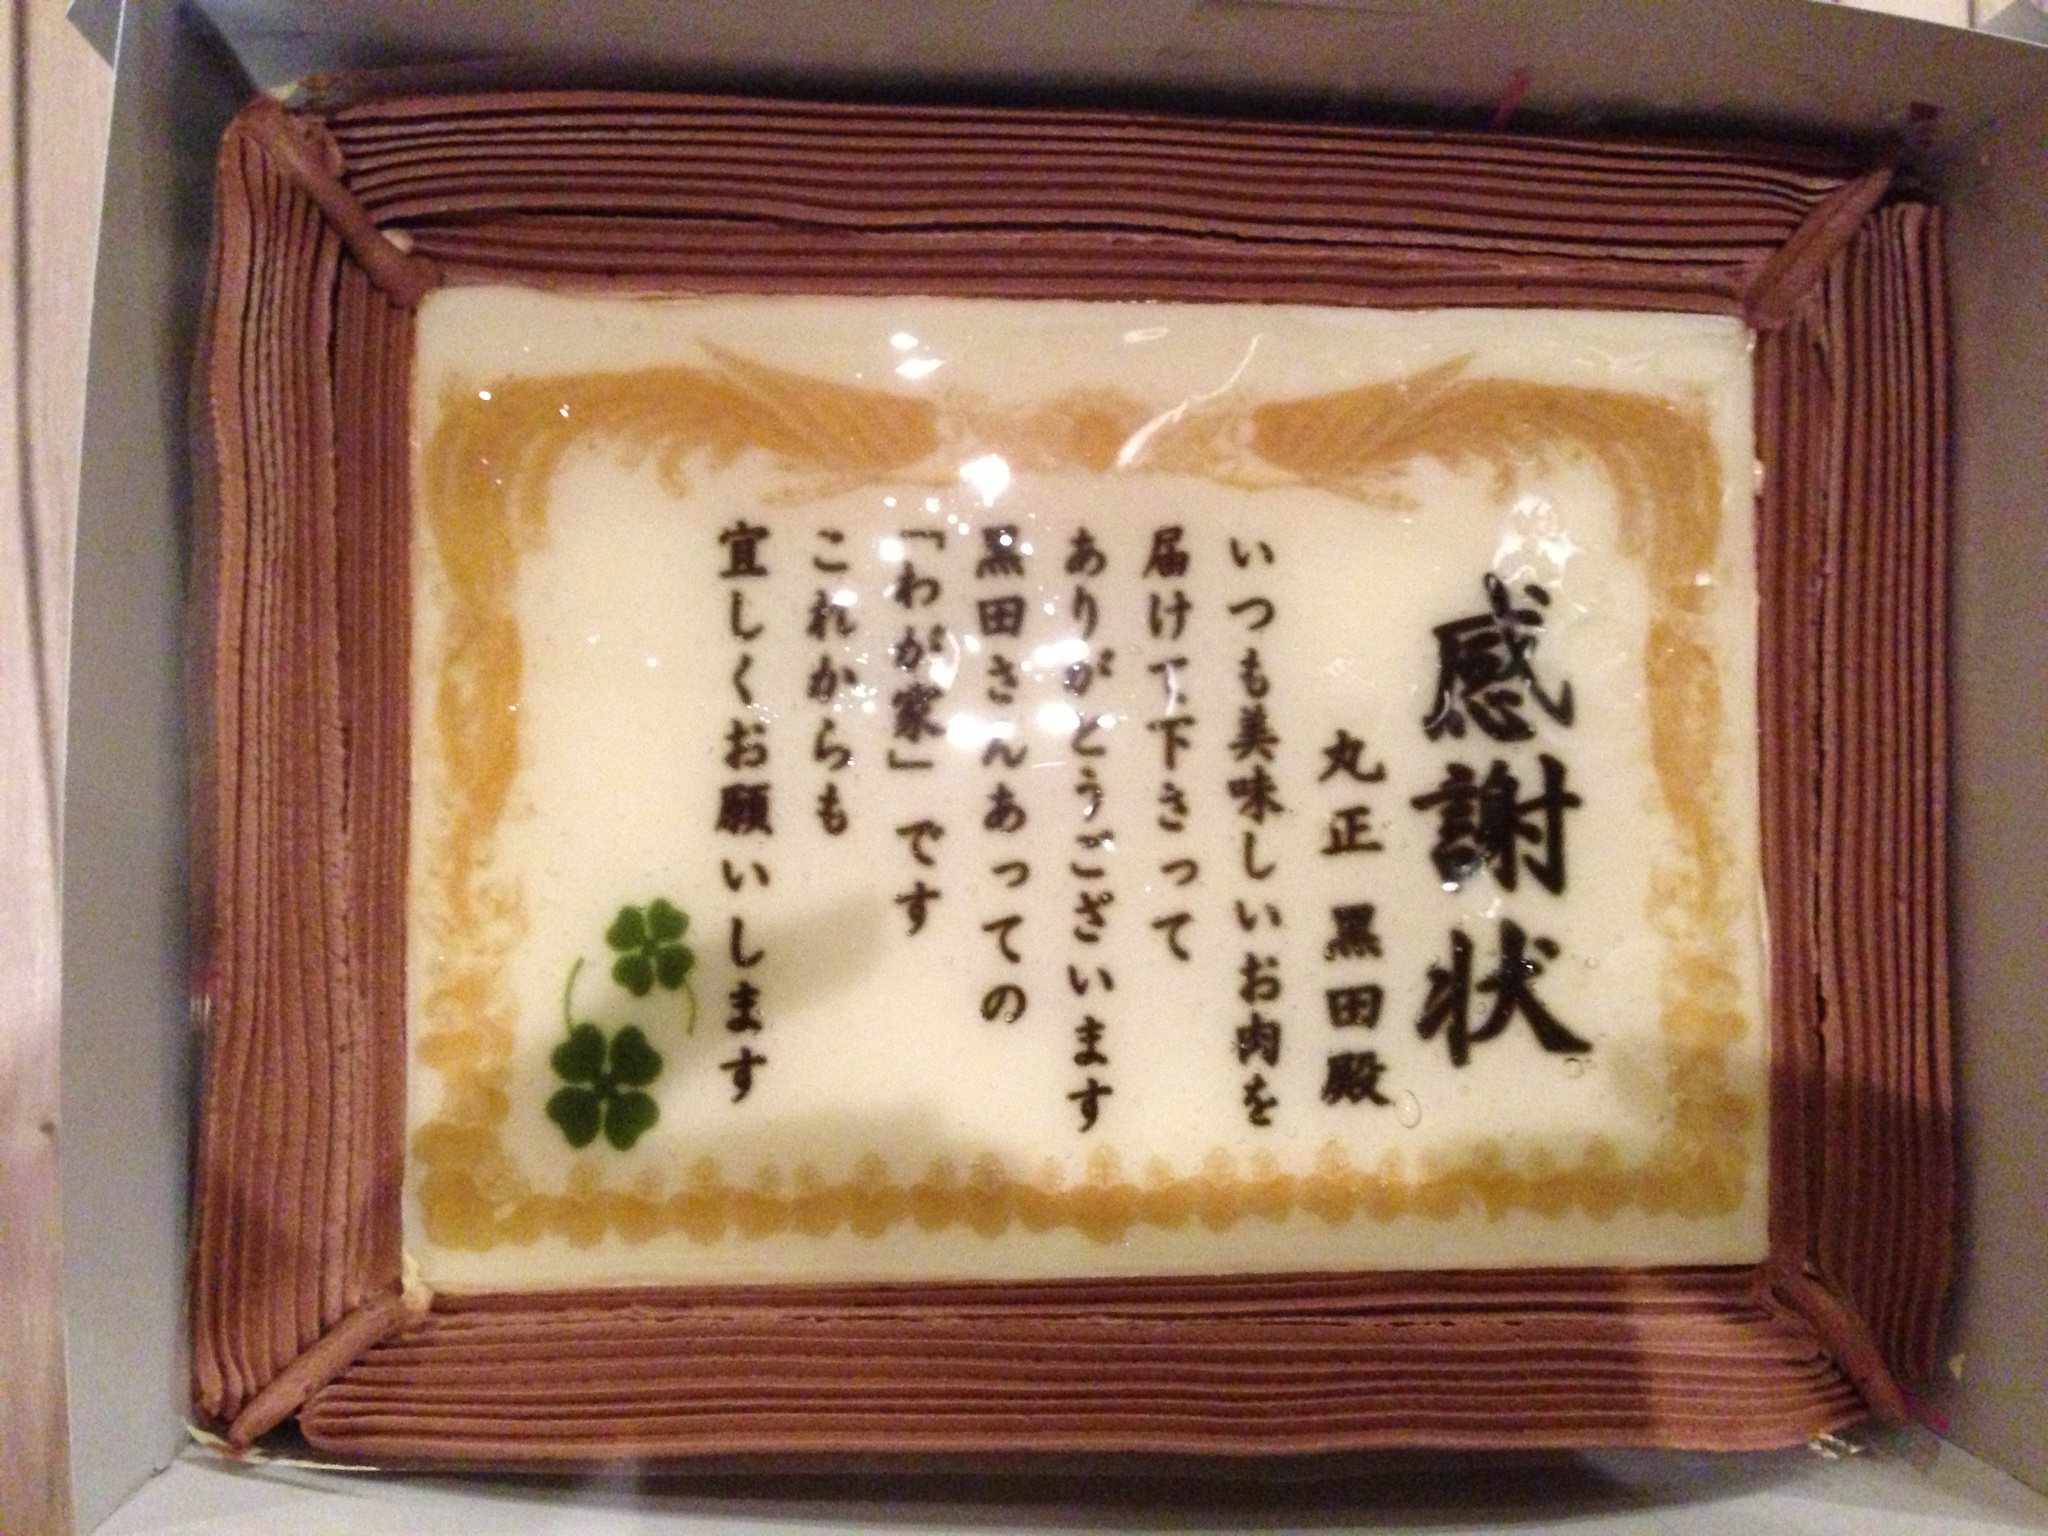 感謝状
丸正 黒田殿
いつも美味しいお肉を
届けて下さって
ありがとうございます
黒田さんあっての
「わが家」です
これからも
宜しくお願いします